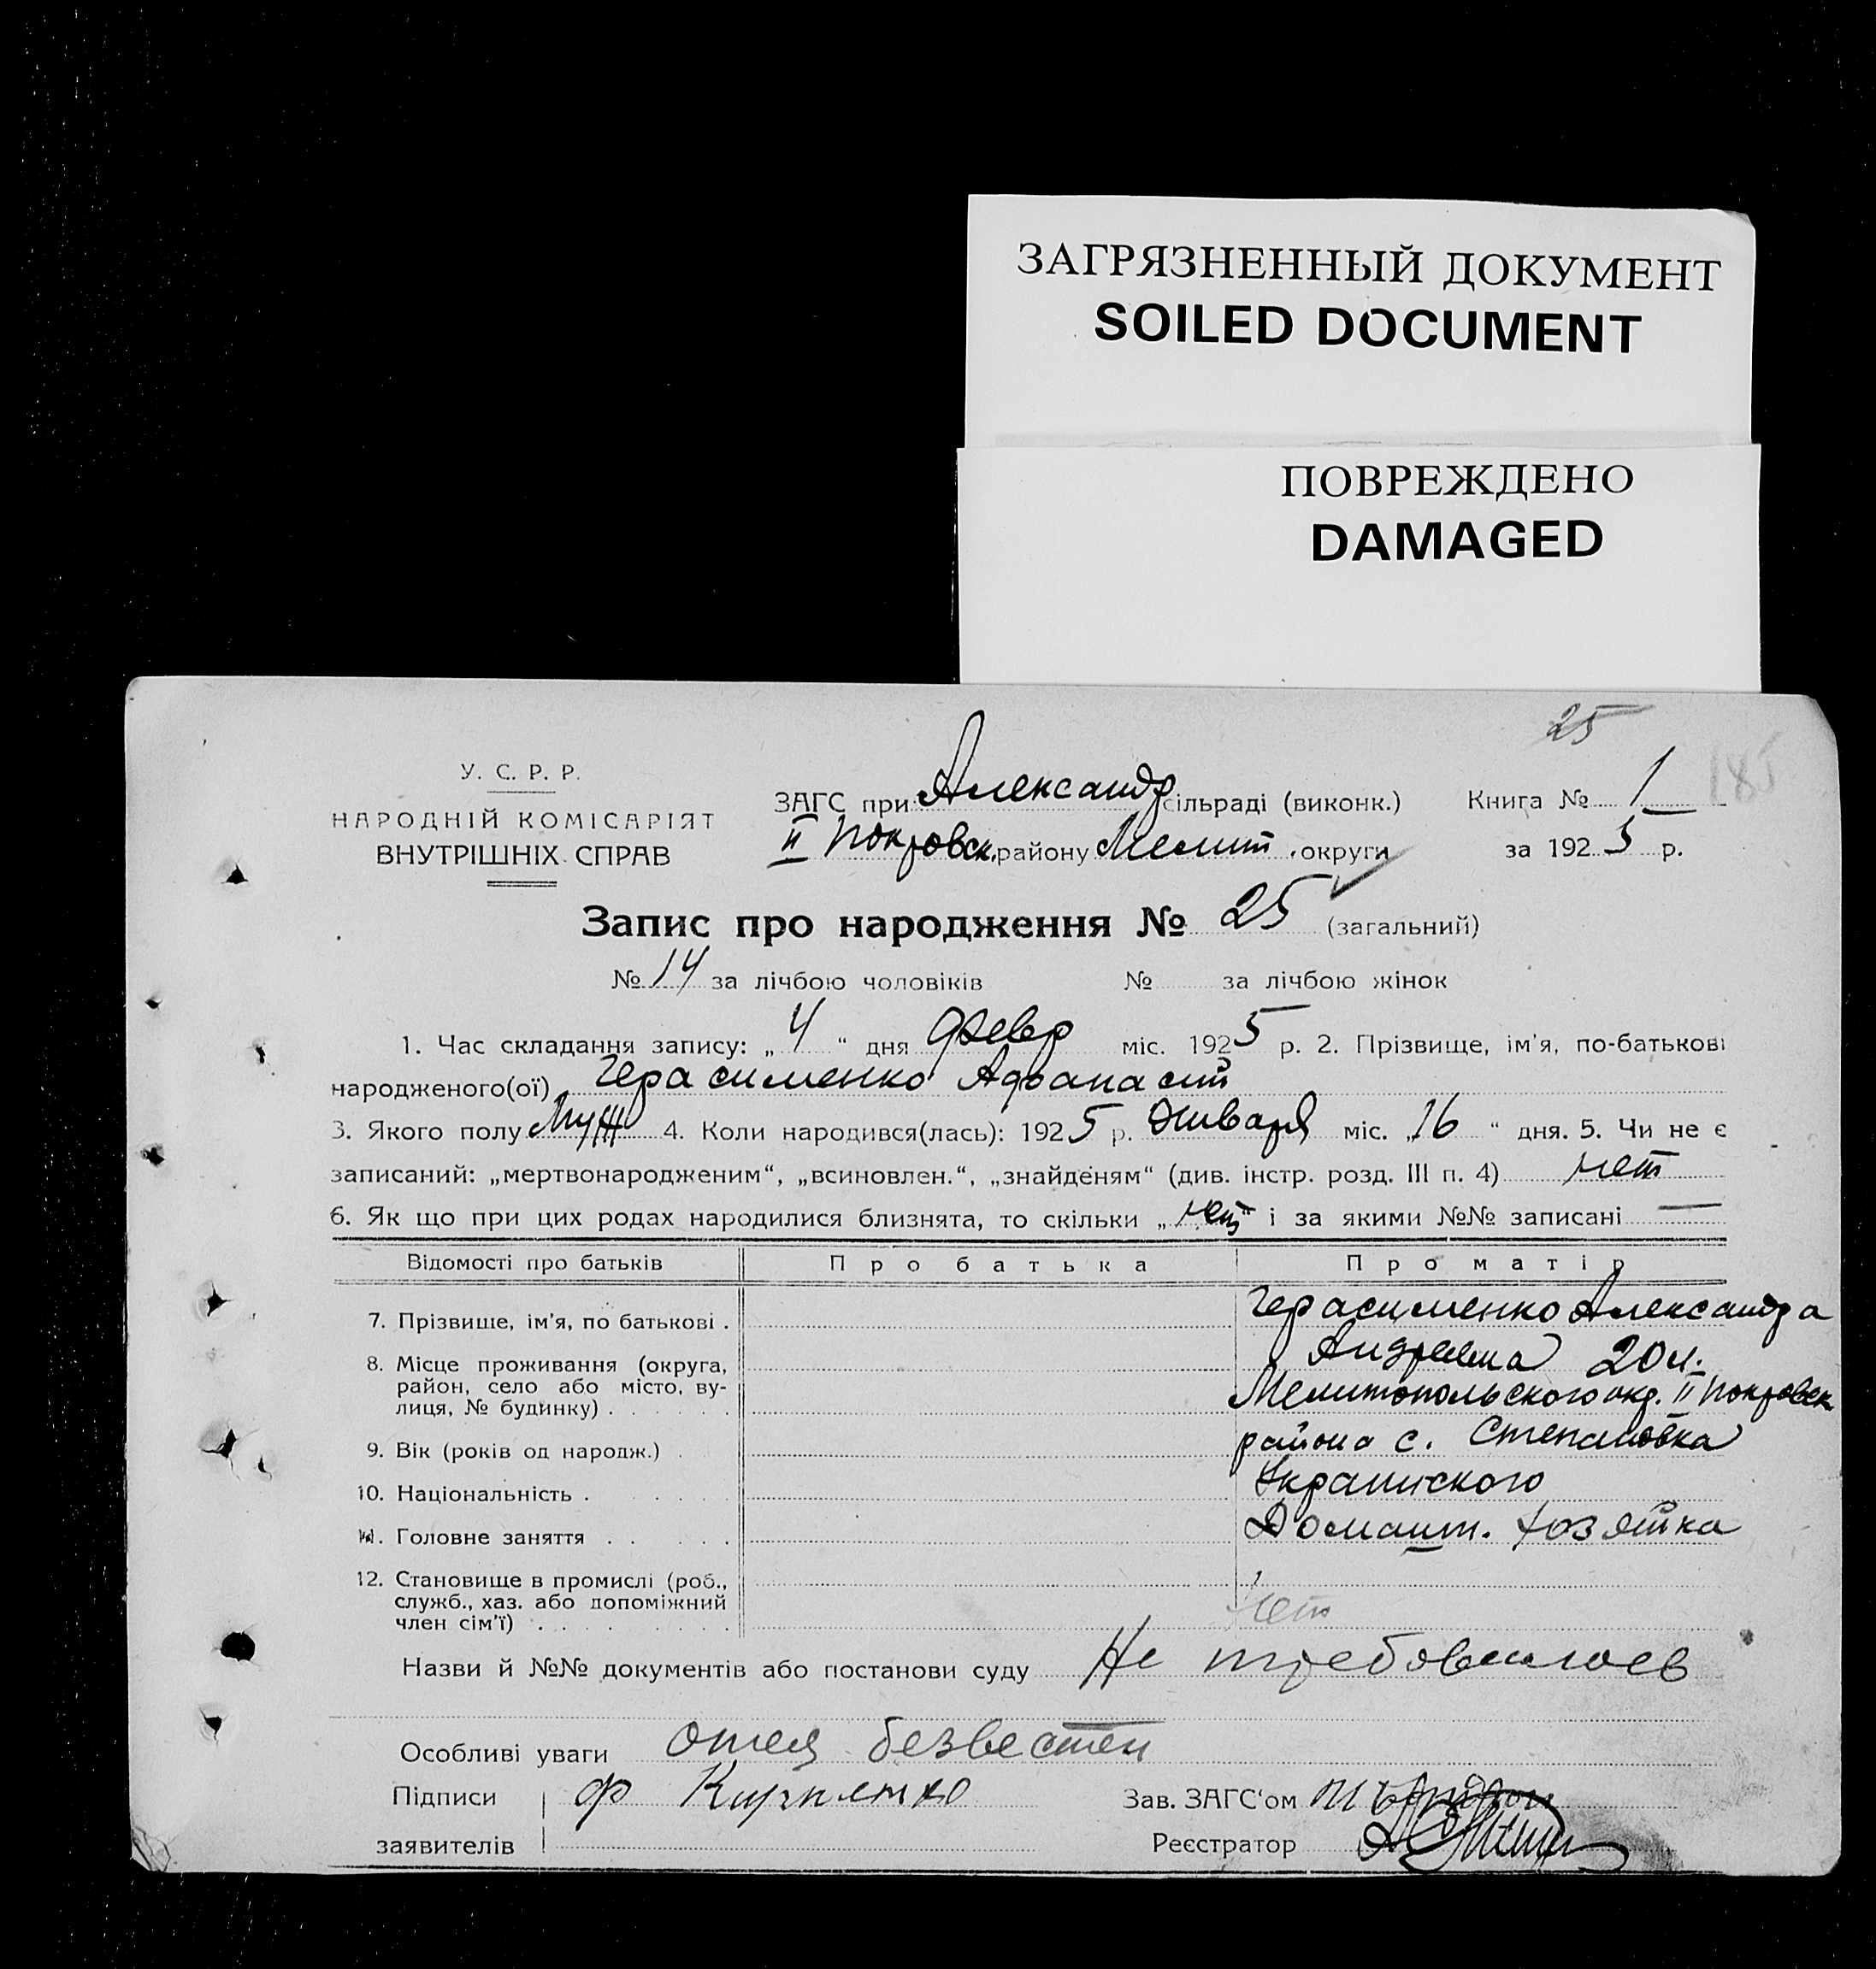 ЗАГРЯЗНЕННЫЙ ДОКУМЕНТ
SOILED DOCUMENT
ПОВРЕЖДЕНО
DAMAGED
25
185
У. С. Р. Р.
НАРОДНІЙ КОМІСАРІЯТ
ВНУТРІШНІХ СПРАВ
ЗАГС при Александр сільраді (виконк.)
Книга № 1
II Покровск. району Мелит. округи
за 1925 р.
Запис про народження № 25 (загальний)
№ 14 за лічбою чоловіків № за лічбою жінок
1. Час складання запису: „4“ дня февр міс. 1925 р. 2. Прізвище, ім'я, по-батькові
народженого(ої) Герасименко Афанасий
3. Якого полу Муж 4. Коли народився(лась): 1925 р. Января міс. „16“ дня. 5. Чи не є
записаний: „мертвонародженим“, „всиновлен.“, „знайденям“ (див. інстр. розд. III п. 4) нет
6. Як що при цих родах народилися близнята, то скільки „нет“ і за якими №№ записані —
Відомості про батьків
Про батька
Про матір
7. Прізвише, ім'я, по батькові .
Герасименко Александра
Андреевна 20 л.
8. Місце проживання (округа,
район, село або місто, ву-
лиця, № будинку) .
Мелитопольского окр. II Покровск
района с. Степановка
9. Вік (років од народж.) .
10. Національність .
Украинского
11. Головне заняття . .
Домашн. хозяйка
12. Становище в промислі (роб.,
служб., хаз. або допоміжний
член сім'ї) .
нет
Назви й №№ документів або постанови суду Не требовалось
Особливі уваги отец безвестен
Підписи
заявителів
Ф
Зав. ЗАГС'ом
Реєстратор